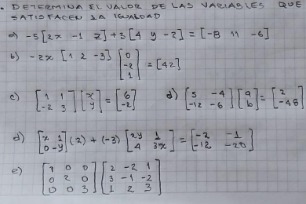 . DETERMINA EL VALOR DE LAS VARIABLES QUE
SATISFACEN LA IGUALDAD
a) -5[2x -1 2]+3[4 y -2]=[-8 11 -6]
b) -2x [1 2 -3] [0 -2 1] = [42]
c) [1 1 -2 3] [x y] = [6 -2] d) [5 -4 -12 -6] [a b] = [2 -48]
d) [x 1 0 -y] (2) + (-3) [2y 1 4 3x] = [-2 -1 -12 -20]
e) [4 0 0 0 2 0 0 0 3] [2 -2 1 3 -1 -2 1 2 3]